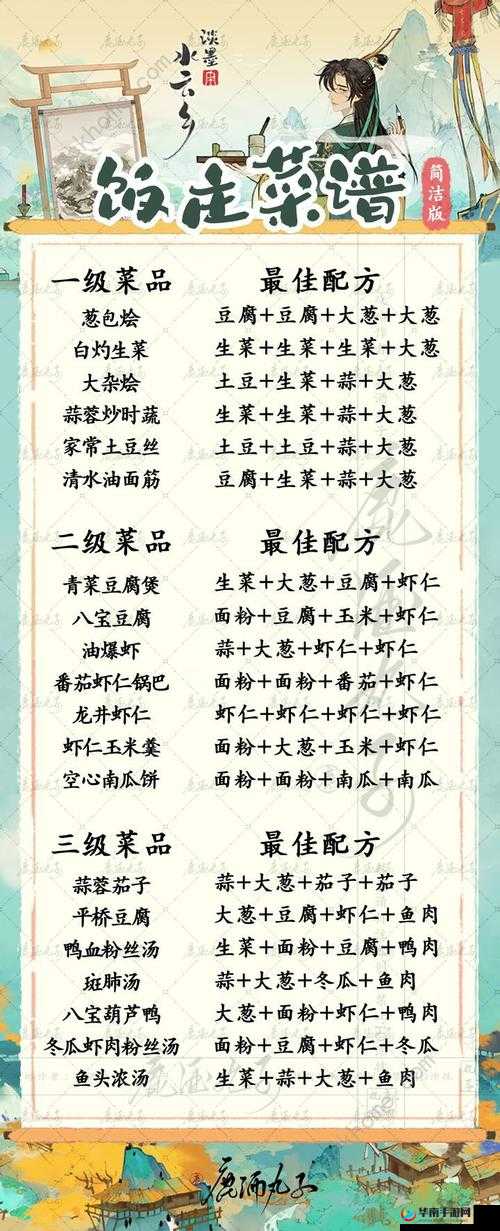 淡墨
水云乡
饭庄菜谱
简洁版
一级菜品 最佳配方
葱包烩 豆腐+豆腐+大葱+大葱
白灼生菜 生菜+生菜+生菜+大葱
大杂烩 土豆+生菜+蒜+大葱
蒜蓉炒时蔬 生菜+生菜+蒜+大葱
家常土豆丝 土豆+土豆+蒜+大葱
清水油面筋 豆腐+生菜+蒜+大葱
二级菜品 最佳配方
青菜豆腐煲 生菜+大葱+豆腐+虾仁
八宝豆腐 面粉+豆腐+玉米+虾仁
油爆虾 蒜+大葱+虾仁+虾仁
番茄虾仁锅巴 面粉+面粉+番茄+虾仁
龙井虾仁 虾仁+虾仁+虾仁+虾仁
虾仁玉米羹 面粉+大葱+玉米+虾仁
空心南瓜饼 面粉+面粉+南瓜+南瓜
三级菜品 最佳配方
蒜蓉茄子 蒜+大葱+茄子+茄子
平桥豆腐 大葱+豆腐+虾仁+鱼肉
鸭血粉丝汤 生菜+面粉+豆腐+鸭肉
斑肺汤 蒜+大葱+冬瓜+鱼肉
八宝葫芦鸭 大葱+面粉+虾仁+鸭肉
冬瓜虾肉粉丝汤 面粉+豆腐+虾仁+冬瓜
鱼头浓汤 生菜+蒜+大葱+鱼肉
鹿酒丸子
华南手游网